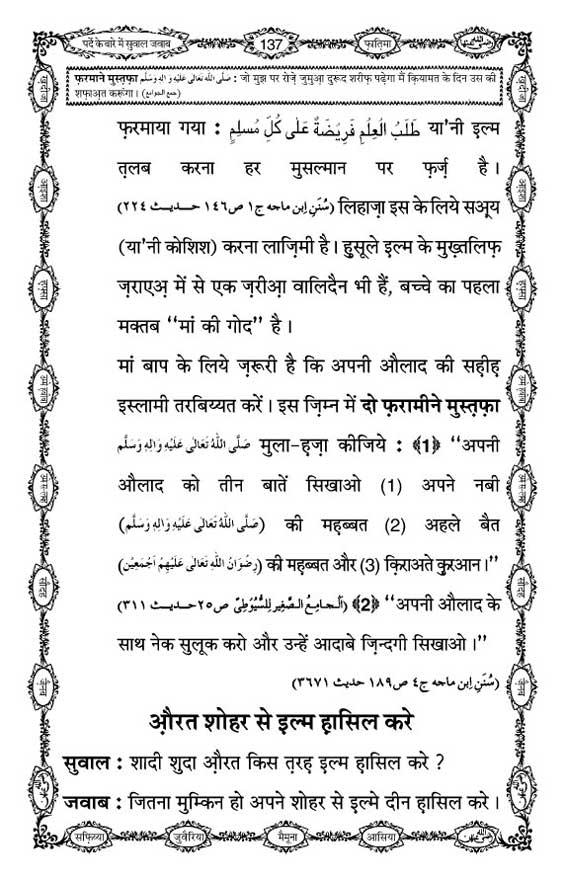 पर्दे के बारे में सुवाल जवाब
137
फ़ातिमा
फ़रमाने मुस्तफ़ा صَلَّى اللّٰهُ تَعَالٰى عَلَيْهِ وَاٰلِهٖ وَسَلَّم : जो मुझ पर रोज़े जुमुआ दुरूद शरीफ़ पढ़ेगा मैं क़ियामत के दिन उस की
शफ़ाअ़त करूंगा। (جمع الجوامع)
फ़रमाया गया : طَلَبُ الْعِلْمِ فَرِيْضَةٌ عَلٰى كُلِّ مُسْلِمٍ या'नी इल्म
त़लब करना हर मुसल्मान पर फ़र्ज़ है।
(سُنَن اِبن ماجه ج۱ ص۱٤٦ حديث ۲۲٤) लिहाज़ा इस के लिये सअ्य
(या'नी कोशिश) करना लाज़िमी है। हुसूले इल्म के मुख़्तलिफ़
ज़राएअ़ में से एक ज़रीआ़ वालिदैन भी हैं, बच्चे का पहला
मक्तब ‘‘मां की गोद’’ है।
मां बाप के लिये ज़रूरी है कि अपनी औलाद की सह़ीह़
इस्लामी तरबिय्यत करें। इस ज़िम्न में दो फ़रामीने मुस्त़फ़ा
صَلَّى اللّٰهُ تَعَالٰى عَلَيْهِ وَاٰلِهٖ وَسَلَّم मुला-ह़ज़ा कीजिये : ﴾1﴿ ‘‘अपनी
औलाद को तीन बातें सिखाओ (1) अपने नबी
(صَلَّى اللّٰهُ تَعَالٰى عَلَيْهِ وَاٰلِهٖ وَسَلَّم) की महब्बत (2) अहले बैत
(رِضْوَانُ اللّٰهِ تَعَالٰى عَلَيْهِمْ اَجْمَعِيْن) की महब्बत और (3) क़िराअते कुरआन।’’
(اَلْجامِعُ الصَّغِير لِلسُّيُوطِىّ ص۲۵ حديث ۳۱۱) ﴾2﴿ ‘‘अपनी औलाद के
साथ नेक सुलूक करो और उन्हें आदाबे ज़िन्दगी सिखाओ।’’
(سُنَن اِبن ماجه ج٤ ص۱۸۹ حديث ۳٦۷۱)
औ़रत शोहर से इल्म ह़ासिल करे
सुवाल : शादी शुदा औ़रत किस त़रह़ इल्म ह़ासिल करे ?
जवाब : जितना मुम्किन हो अपने शोहर से इल्मे दीन ह़ासिल करे।
सफ़िय्या
जुवैरिया
मैमूना
आसिया